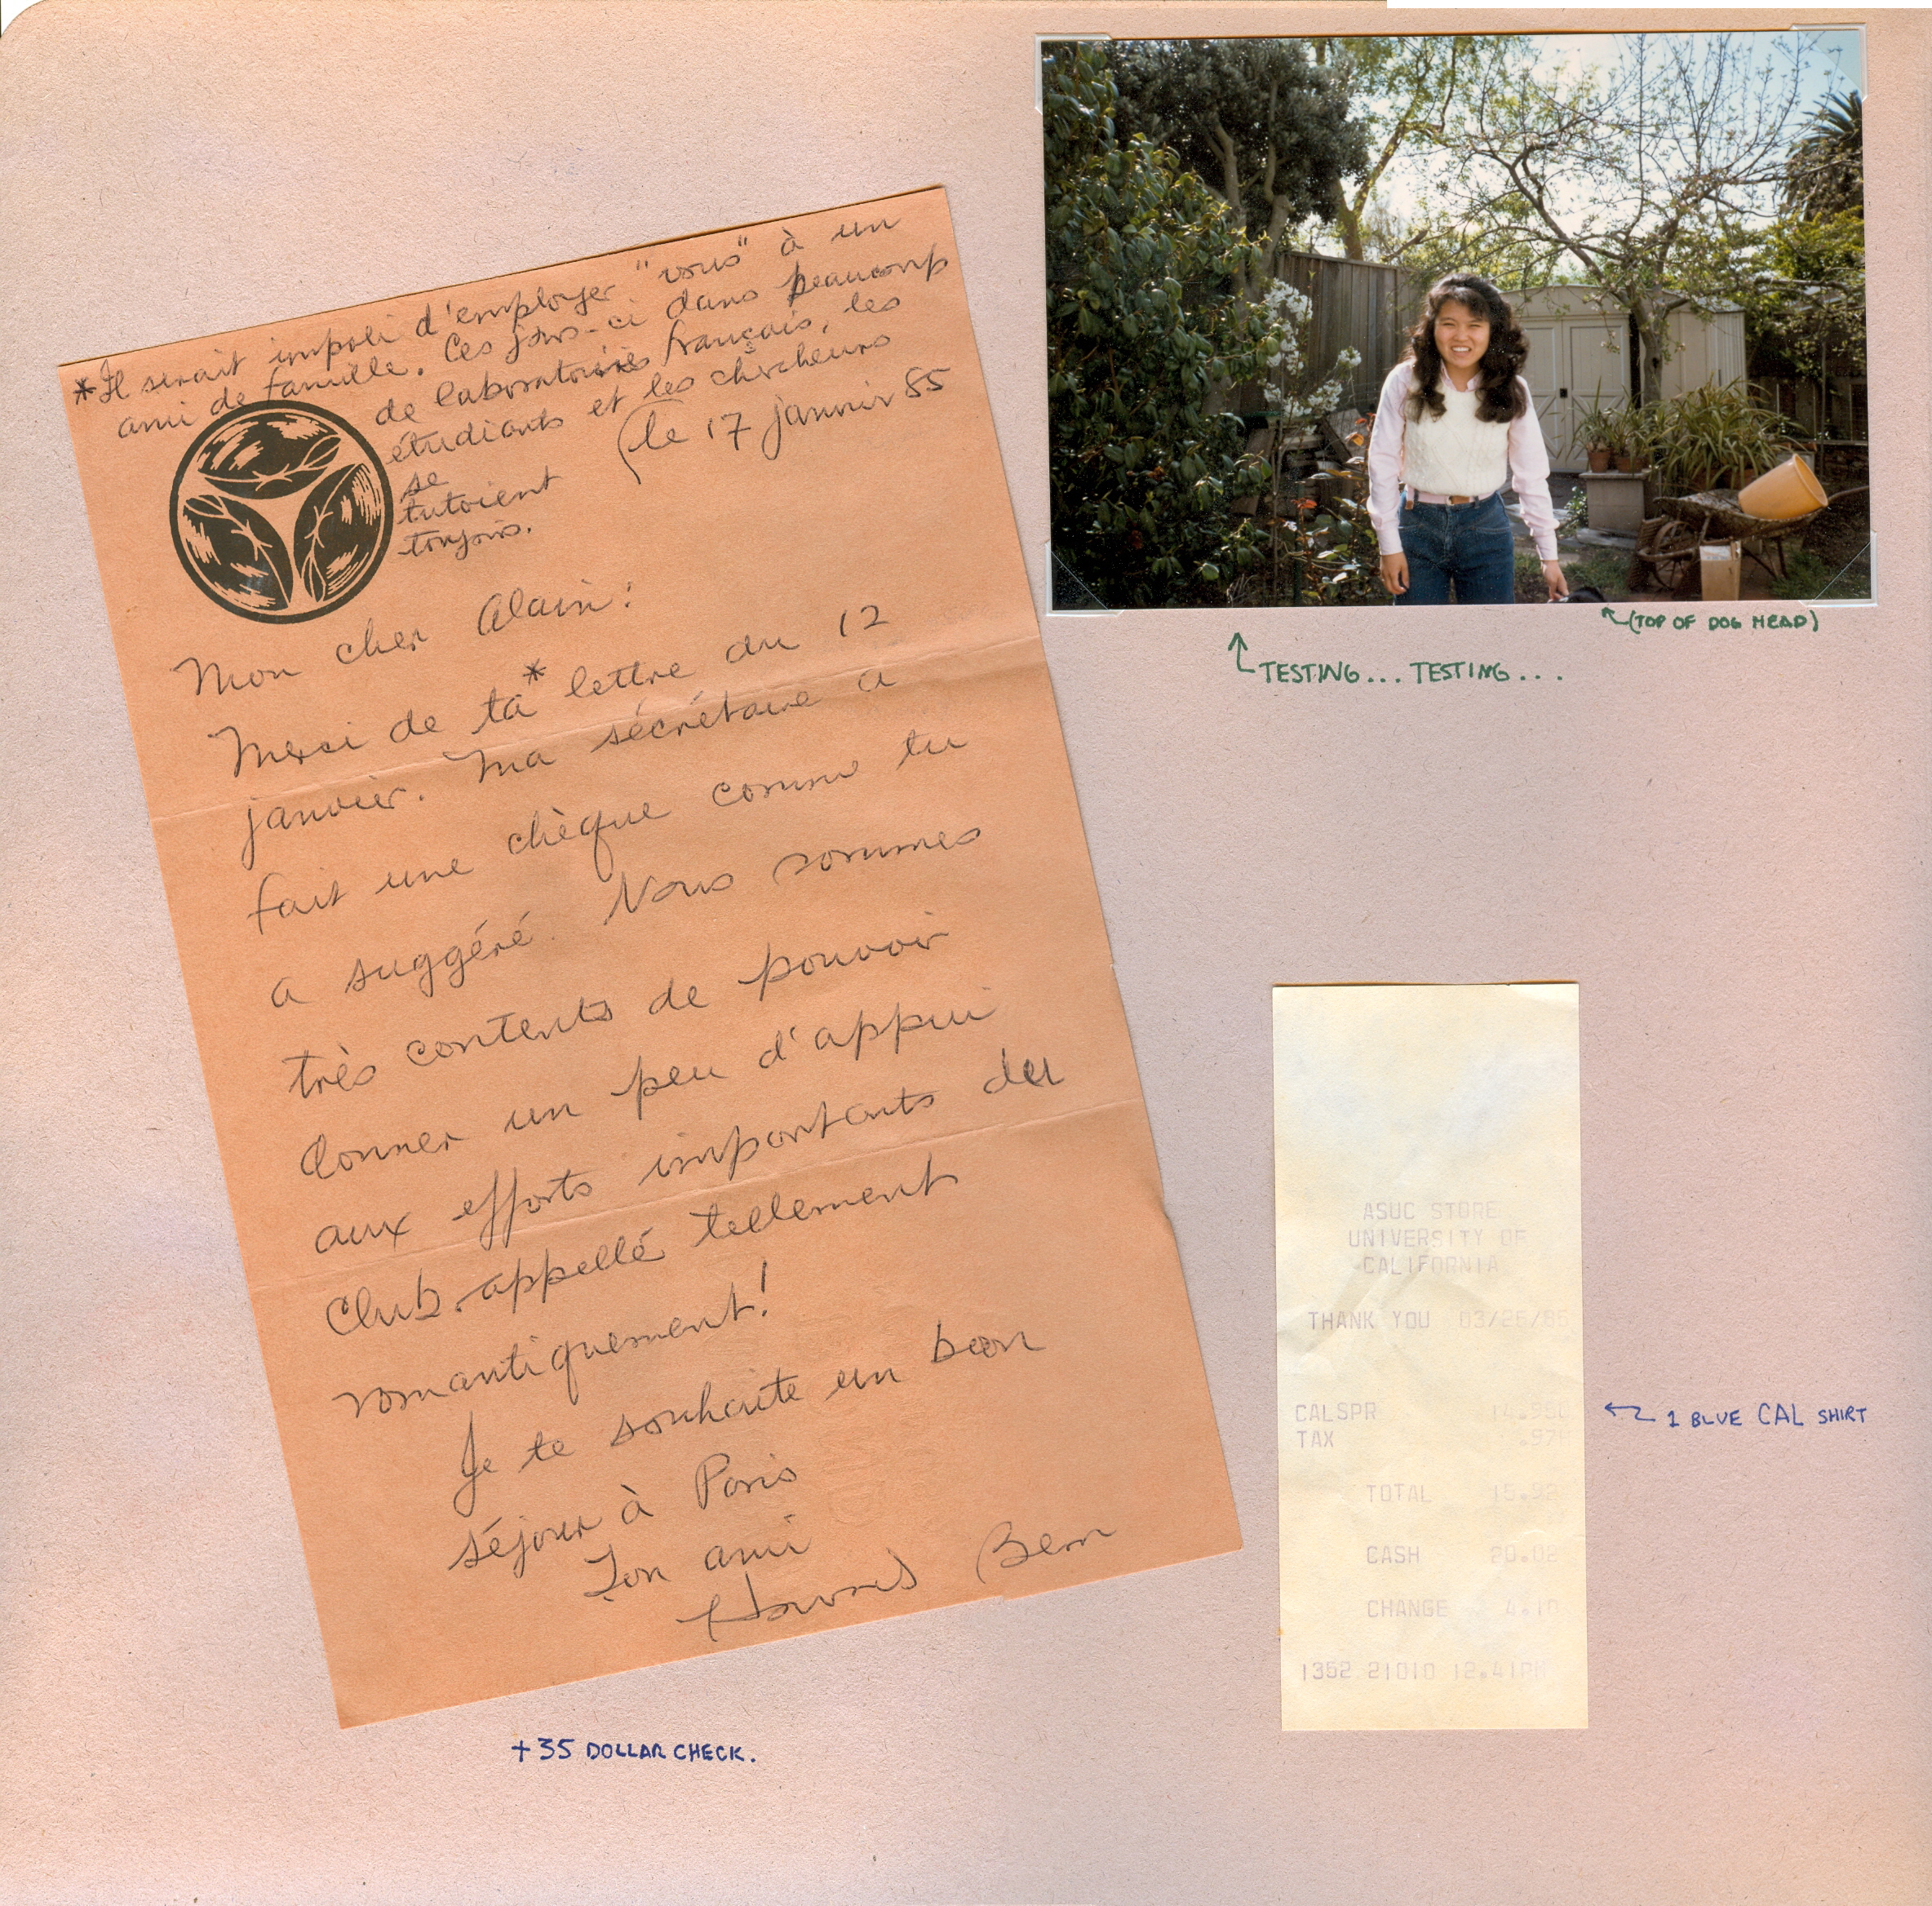 *Il serait impoli d'employer "vous" à un
ami de famille. Ces jours-ci dans beaucoup
de laboratoires français, les
étudiants et les chercheurs
se
tutoient
toujours.
le 17 janvier 85
Mon cher Alain:
Merci de ta* lettre du 12
janvier. Ma sécrétaire a
fait une chèque comme tu
a suggéré. Nous sommes
très contents de pouvoir
donner un peu d'appui
aux efforts importants du
Club appellé tellement
romantiquement!
Je te souhaite un bon
séjour à Paris
Ton ami
Howard Bern
+35 DOLLAR CHECK.
(TOP OF DOG HEAD)
TESTING... TESTING...
ASUC STORE
UNIVERSITY OF
CALIFORNIA
THANK YOU 03/26/85
CALSPR 14.95
TAX .97
TOTAL 15.92
CASH 20.02
CHANGE 4.10
1352 21010 12.41PM
1 BLUE CAL SHIRT